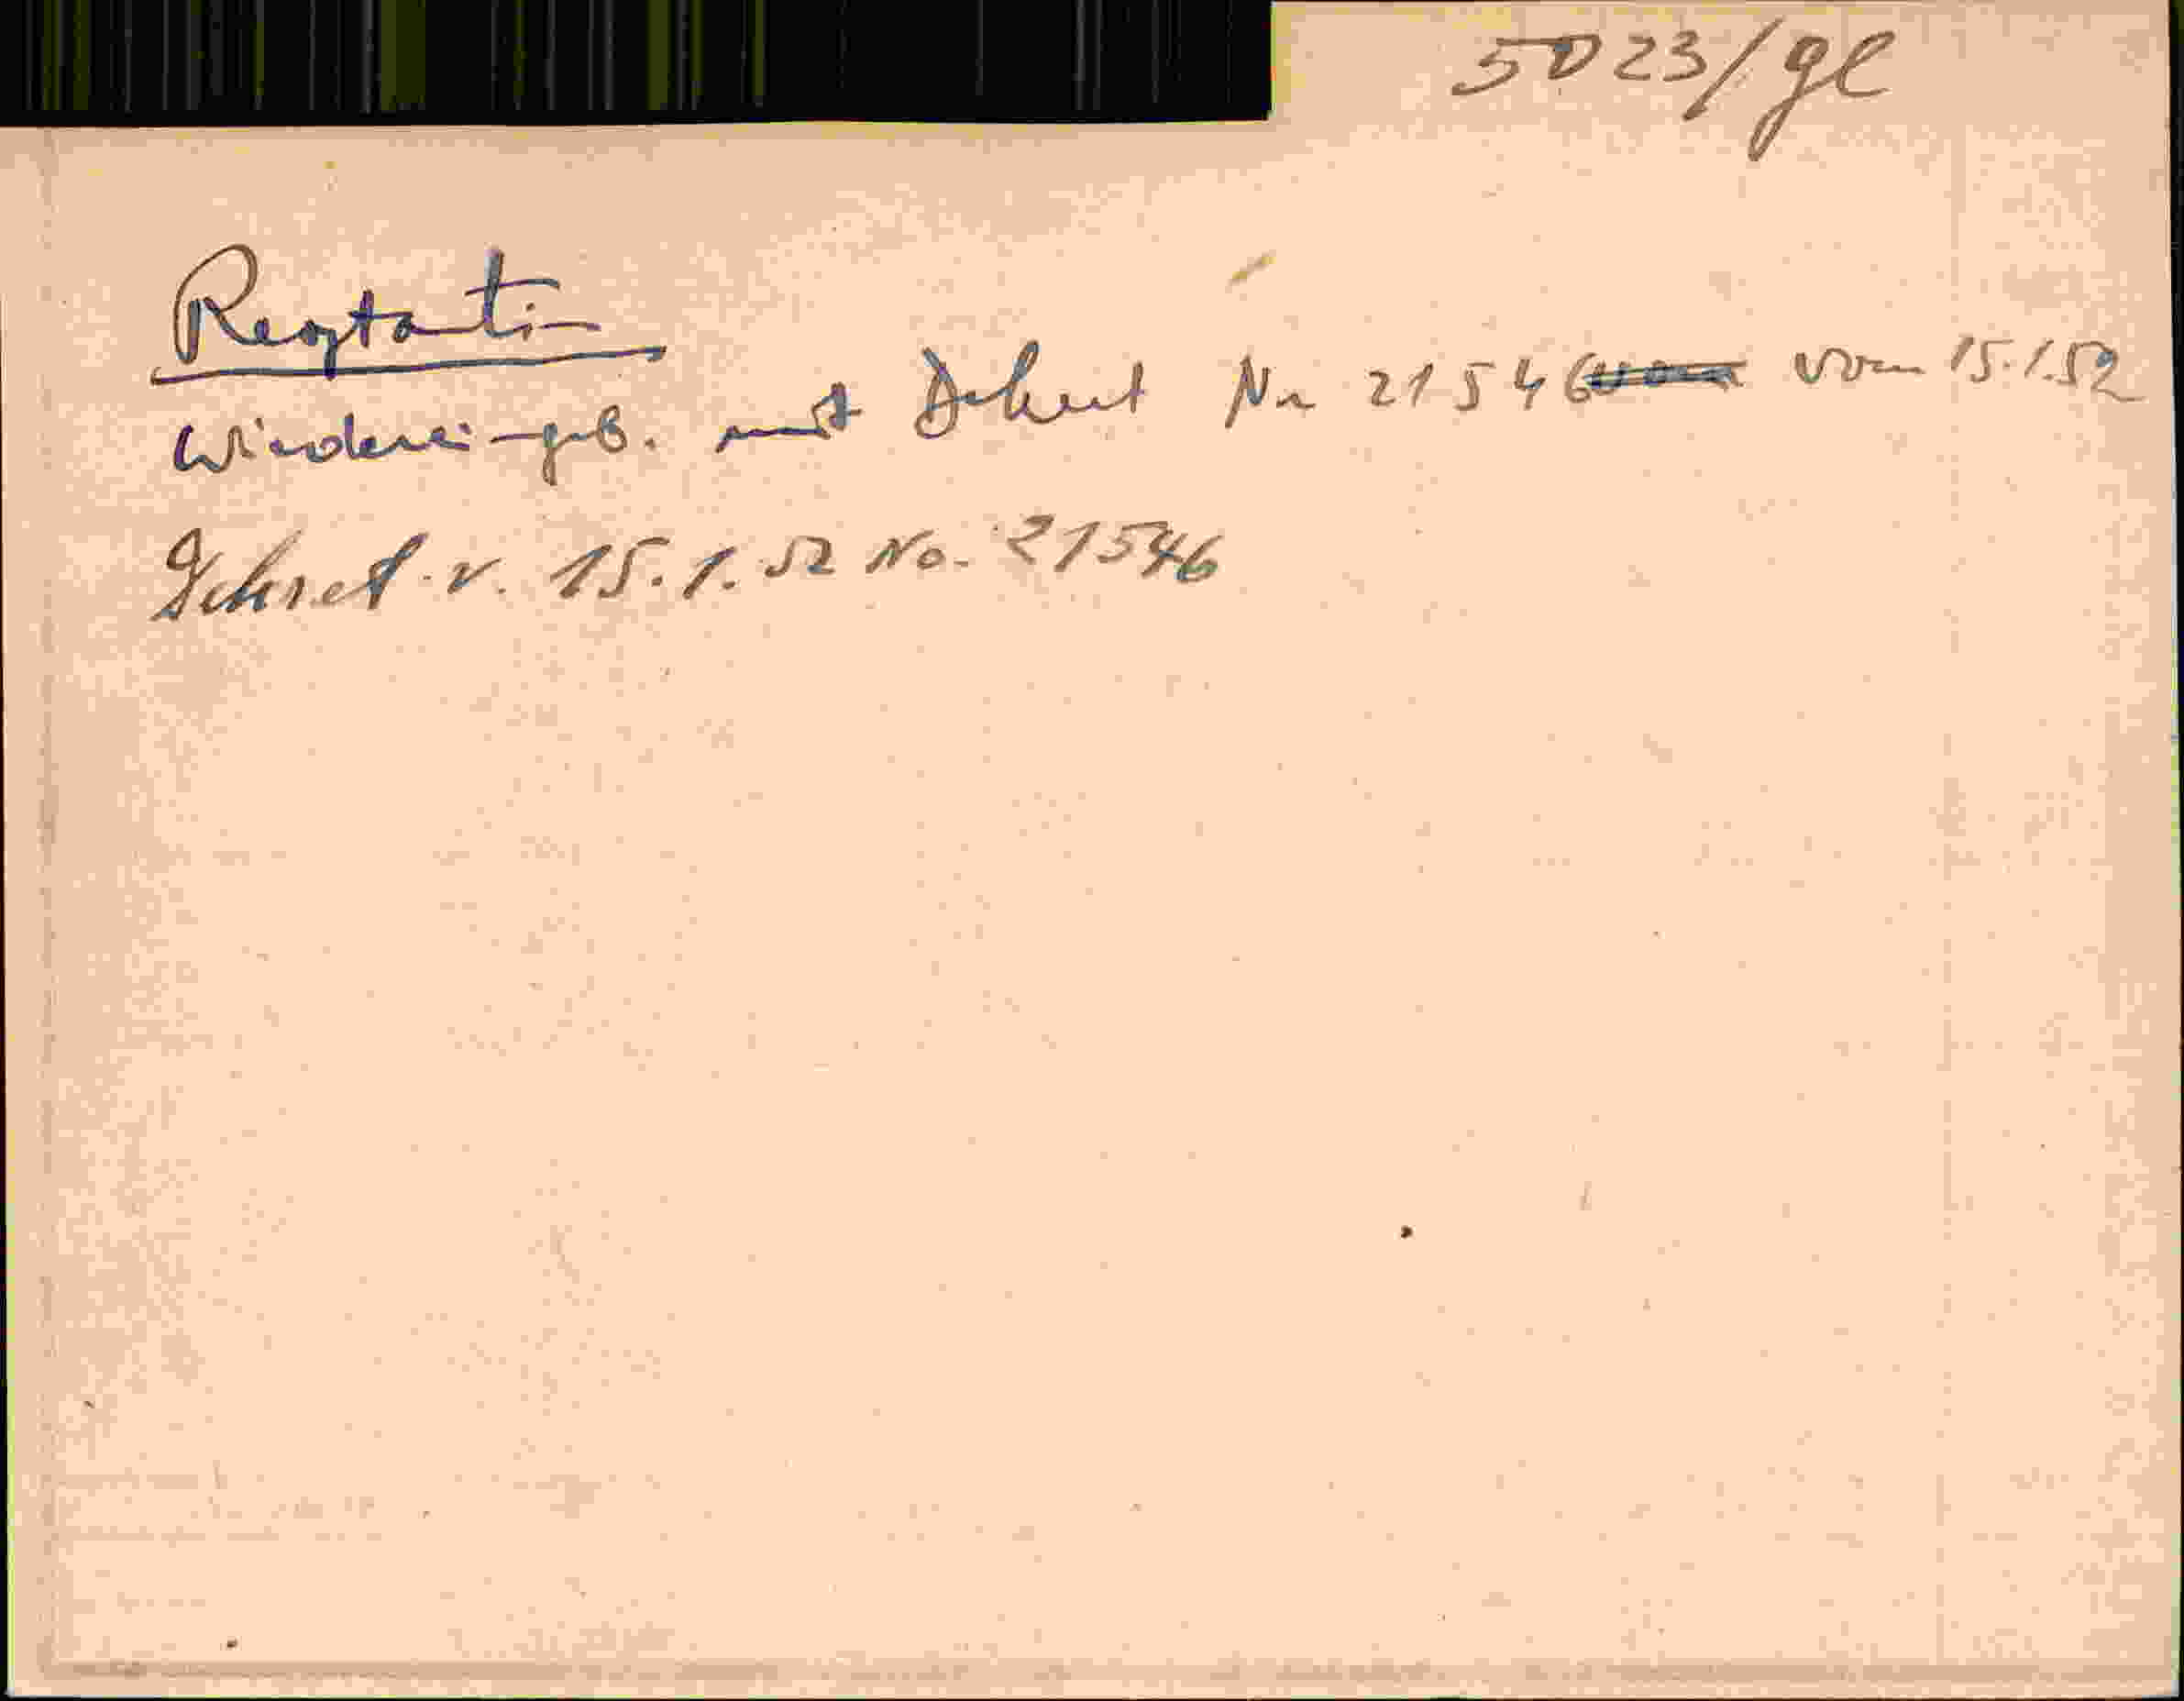 5023/gl
Reoptantin
Wiedereingeb. mit Dekret Nr 21546 vom 15.1.52
Dekret v. 15.1.52 No. 21546